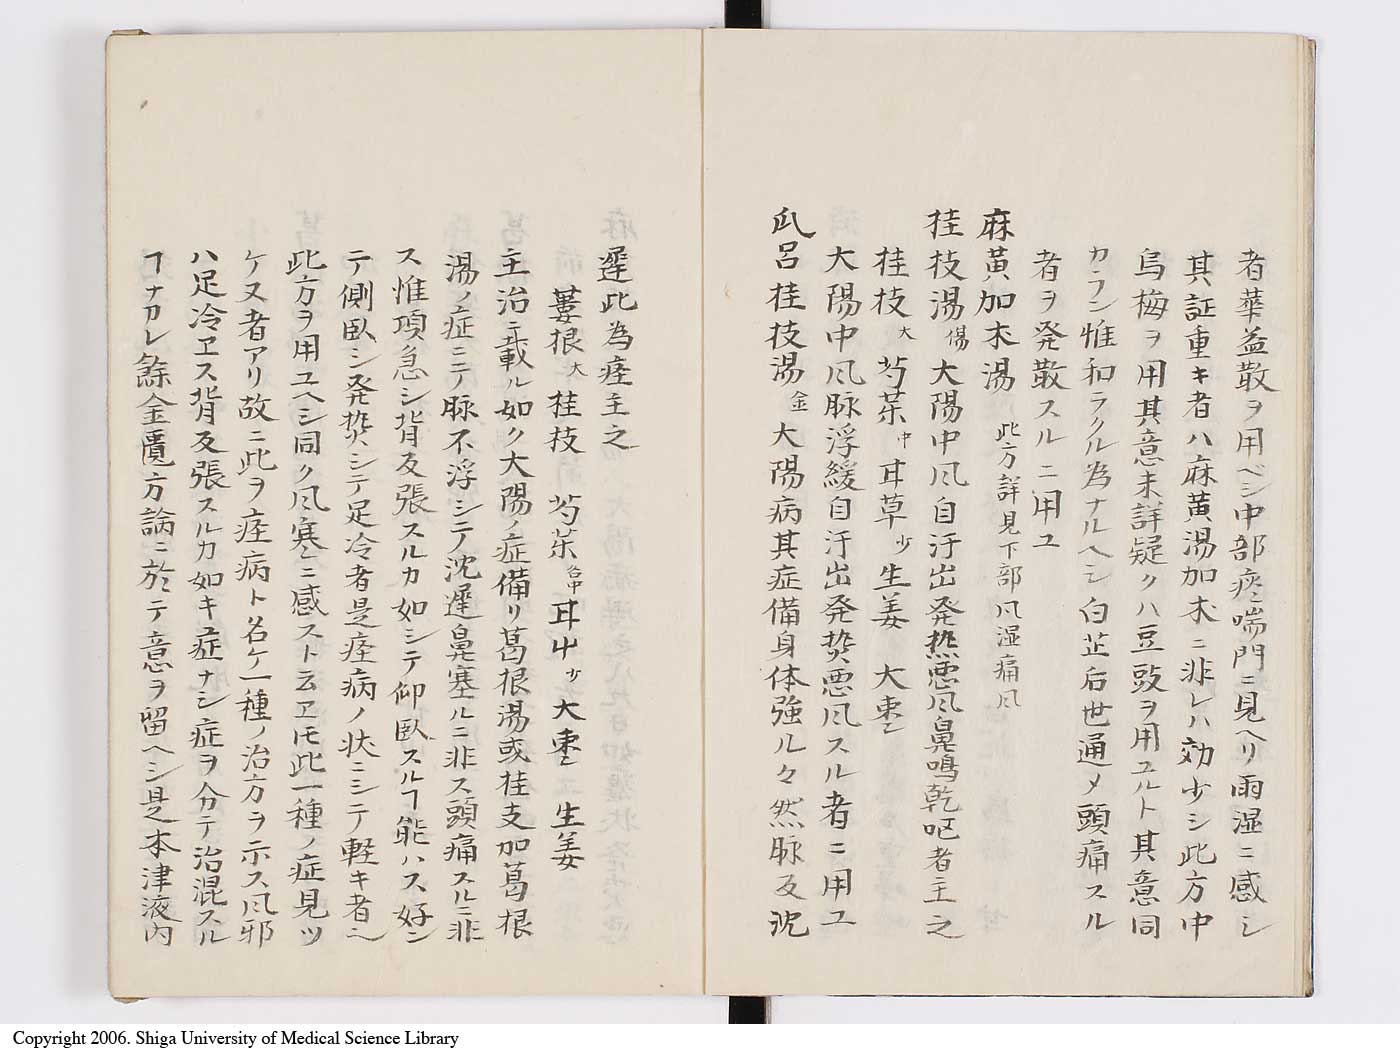 者華蓋散ヲ用ベシ中部痰喘門ニ見ヘリ雨湿ニ感シ
其証重キ者ハ麻黄湯加朮ニ非レハ効少シ此方中
烏梅ヲ用其意未詳疑クハ豆豉ヲ用ユルト其意同
カラン惟和ラクル為ナルヘシ白芷后世通メ頭痛スル
者ヲ発散スルニ用ユ
麻黄加朮湯 此方詳見下部风湿痛风
桂枝湯 傷 大陽中风自汗出発熱悪风鼻鳴乾呕者主之
桂枝 大 芍薬 中 甘草 少 生姜 大棗
大陽中风脉浮緩自汗出発熱悪风スル者ニ用ユ
瓜呂桂枝湯 金 大陽病其症備身体強ル々然脉反沈
遲此為痙主之
蔞根 大 桂枝 芍薬 各中 甘艸 少 大棗 生姜
主治ニ載ル如ク大陽ノ症備リ葛根湯或桂支加葛根
湯ノ症ニテ脉不浮シテ沈遲鼻塞ルニ非ス頭痛スルニ非
ス惟項急シ背反張スルカ如シテ仰臥スルヿ能ハス好ン
テ側臥シ発熱シテ足冷者是痙病ノ状ニシテ軽キ者也
此方ヲ用ユヘシ同ク风寒ニ感スト云ヱ𪜈此一種ノ症見ツ
ケヌ者アリ故ニ此ヲ痙病ト名ケ一種ノ治方ヲ示ス风邪
ハ足冷ヱス背反張スルカ如キ症ナシ症ヲ分テ治混スル
ヿナカレ餘金匱方論ニ於テ意ヲ留ヘシ是本津液内